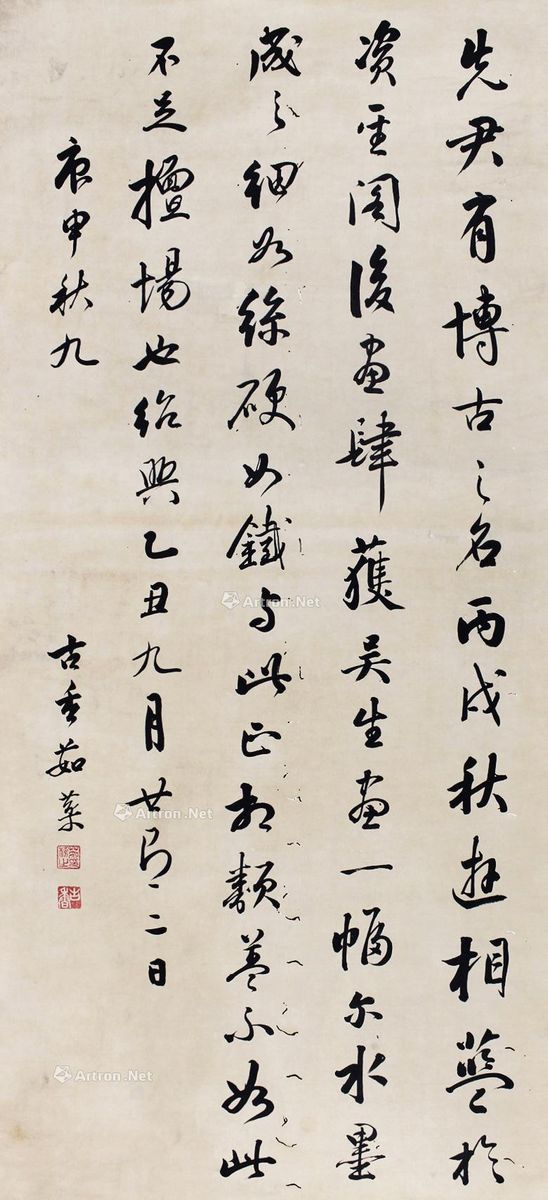 先尹有博古之名丙戌秋遊相藍於
資聖閣後畫肆獲吳生畫一幅尔水墨
成之細如絲硬如鐵与此正相類蓋不如此
不足擅場也紹興乙丑九月廿有二日
庚申秋九
古香茹棻
古香
Artron.Net
Artron.Net
Artron.Net